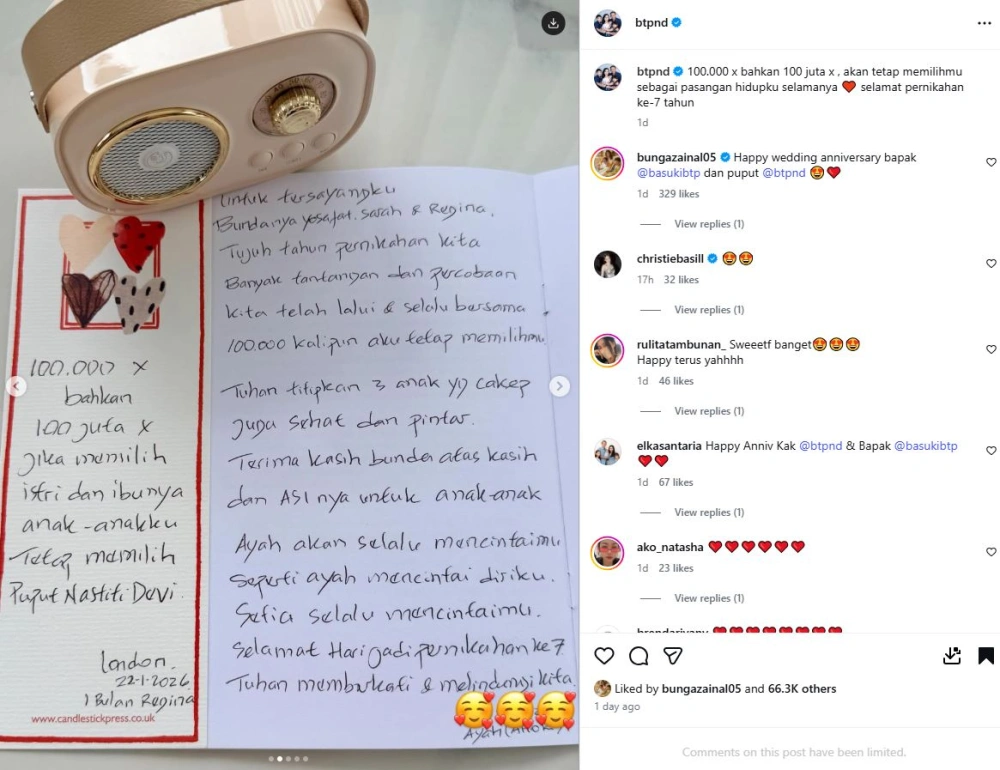 100.000 x
bahkan
100 juta x
jika memilih
istri dan ibunya
anak-anakku
Tetap memilih
Puput Nastiti Devi.
London.
22-1-2026
1 Bulan Regina
www.candlestickpress.co.uk
Untuk tersayangku
Bundanya Yosafat. Sarah & Regina.
Tujuh tahun pernikahan kita
Banyak tantangan dan percobaan
kita telah lalui & selalu bersama
100.000 kalipun aku tetap memilihmu
Tuhan titipkan 3 anak yg cakep
juga sehat dan pintar.
Terima kasih bunda atas kasih
dan ASI nya untuk anak-anak
Ayah akan selalu mencintaimu
seperti ayah mencintai diriku.
Setia selalu mencintaimu.
Selamat Hari jadi pernikahan ke 7
Tuhan memberkati & melindungi kita.
Ayah
btpnd
btpnd 100.000 x bahkan 100 juta x , akan tetap memilihmu
sebagai pasangan hidupku selamanya ❤️ selamat pernikahan
ke-7 tahun
1d
bungazainal05 Happy wedding anniversary bapak
@basukibtp dan puput @btpnd 🤩❤️
1d 329 likes
View replies (1)
christiebasill 🤩🤩
17h 32 likes
View replies (1)
rulitatambunan_ Sweeetf banget🤩🤩🤩
Happy terus yahhhh
1d 46 likes
View replies (1)
elkasantaria Happy Anniv Kak @btpnd & Bapak @basukibtp
❤️❤️
1d 67 likes
View replies (1)
ako_natasha ❤️❤️❤️❤️❤️❤️
1d 23 likes
View replies (1)
Liked by bungazainal05 and 66.3K others
1 day ago
Comments on this post have been limited.